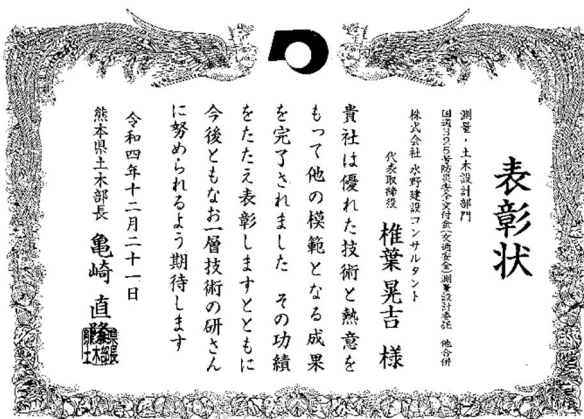 表彰状
測量・土木設計部門
国道325号防災安全交付金(交通安全)測量設計委託 他合併
株式会社 水野建設コンサルタント
代表取締役 椎葉 晃吉 様
貴社は優れた技術と熱意を
もって他の模範となる成果
を完了されました その功績
をたたえ表彰しますとともに
今後ともなお一層技術の研さん
に努められるよう期待します
令和四年十二月二十一日
熊本県土木部長 亀崎 直隆